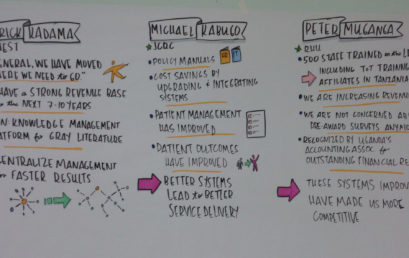 RICK KADAMA
EST
GENERAL, WE HAVE MOVED
HERE WE NEED to GO"
HAVE A STRONG REVENUE BASE
the NEXT 7-10 YEARS
N KNOWLEDGE MANAGEMENT
PLATFORM for GRAY LITERATURE
CENTRALIZE MANAGEMENT
for FASTER RESULTS
MICHAEL KABUGO
• POLICY MANUALS
• COST SAVINGS BY
UPGRADING & INTEGRATING
SYSTEMS
• PATIENT MANAGEMENT
HAS IMPROVED
• PATIENT OUTCOMES
HAVE IMPROVED
BETTER SYSTEMS
LEAD to BETTER
SERVICE DELIVERY
PETER MUGANGA
500 STAFF TRAINED on the
INCLUDING TOT TRAINING
AFFILIATES IN TANZANIA
• WE ARE INCREASING REVENUE
• WE ARE NOT CONCERNED AB
PRE AWARD SURVEYS ANYM
• RECOGNIZED BY UGANDA'S
ACCOUNTING ASSOC. for
OUTSTANDING FINANCIAL RE
THESE SYSTEMS IMPROV
HAVE MADE US MORE
COMPETITIVE